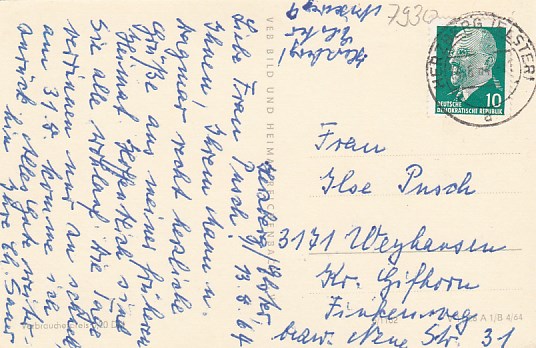 7930
HERZBERG (ELSTER)
DEUTSCHE
DEMOKRATISCHE REPUBLIK
10
Frau
Ilse Pusch
3171 Weyhausen
Kr. Gifhorn
Finkenweg
bzw. Neue Str. 31
VEB BILD UND HEIMAT REICHENBACH
Herzberg/Elster
13.8.64
Liebe Frau Pusch!
Ihnen, Ihrem Mann u.
Dagmar recht herzliche
Grüße aus meiner früheren
Heimat. Hoffentlich sind
Sie alle wohlauf. Die Tage
verrinnen nur zu schnell
am 31.8 komme ich
zurück. Alles Gute weiter-
hin Ihre
Verbraucherpreis
A 1/B 4/64